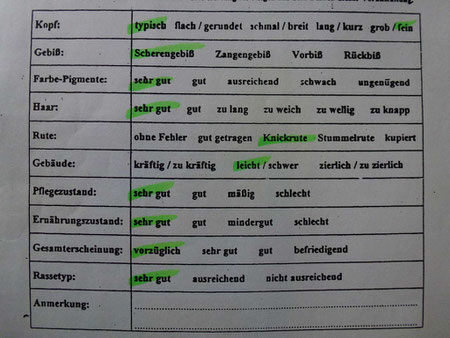 Kopf: typisch flach / gerundet schmal / breit lang / kurz grob / fein
Gebiß: Scherengebiß Zangengebiß Vorbiß Rückbiß
Farbe-Pigmente: sehr gut gut ausreichend schwach ungenügend
Haar: sehr gut gut zu lang zu weich zu wellig zu knapp
Rute: ohne Fehler gut getragen Knickrute Stummelrute kupiert
Gebäude: kräftig / zu kräftig leicht / schwer zierlich / zu zierlich
Pflegezustand: sehr gut gut mäßig schlecht
Ernährungszustand: sehr gut gut mindergut schlecht
Gesamterscheinung: vorzüglich sehr gut gut befriedigend
Rassetyp: sehr gut ausreichend nicht ausreichend
Anmerkung: